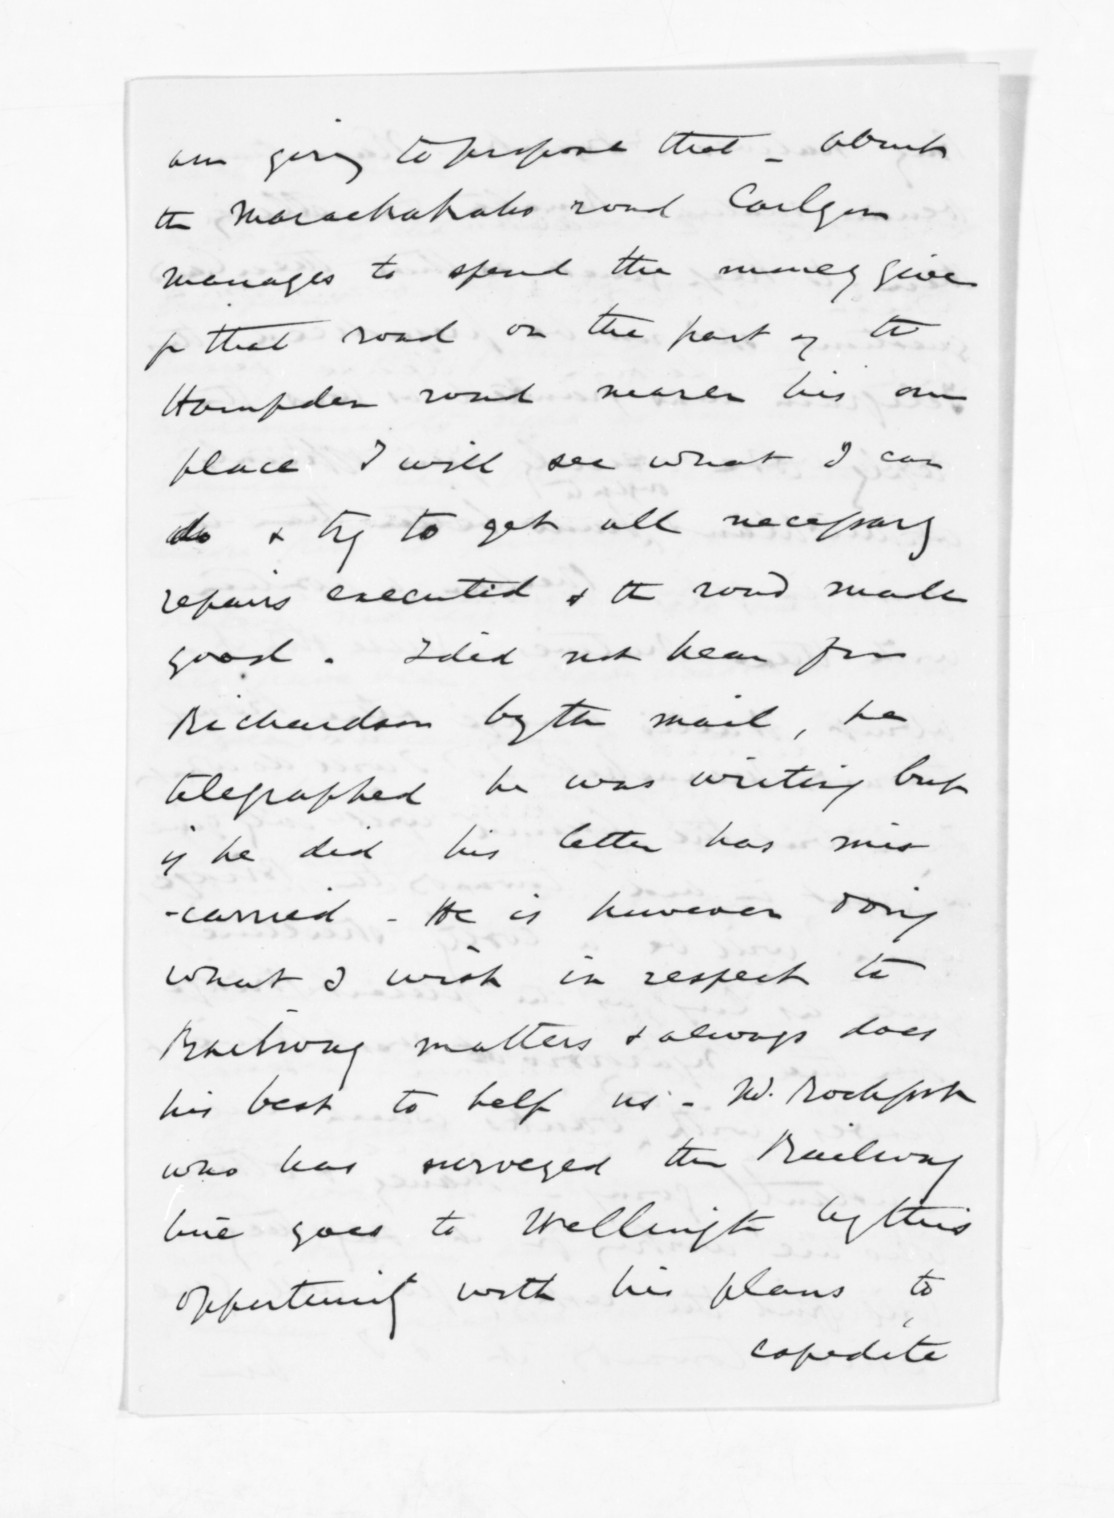 am going to propose that _ about
the Maraekakaho road Carlyon
manages to spend the money given
for that road on the part of the
Hampden road nearer his own
place I will see what I can
do & try to get all necessary
repairs executed & the road made
good . I did not hear from
Richardson by the mail , he
telegraphed he was writing but
if he did his letter has mis
-carried - He is however doing
what I wish in respect to
Railway matters & always does
his best to help us - Mr. Rochfort
who has surveyed the Railway
line goes to Wellington by this
opportunity with his plans to
expedite